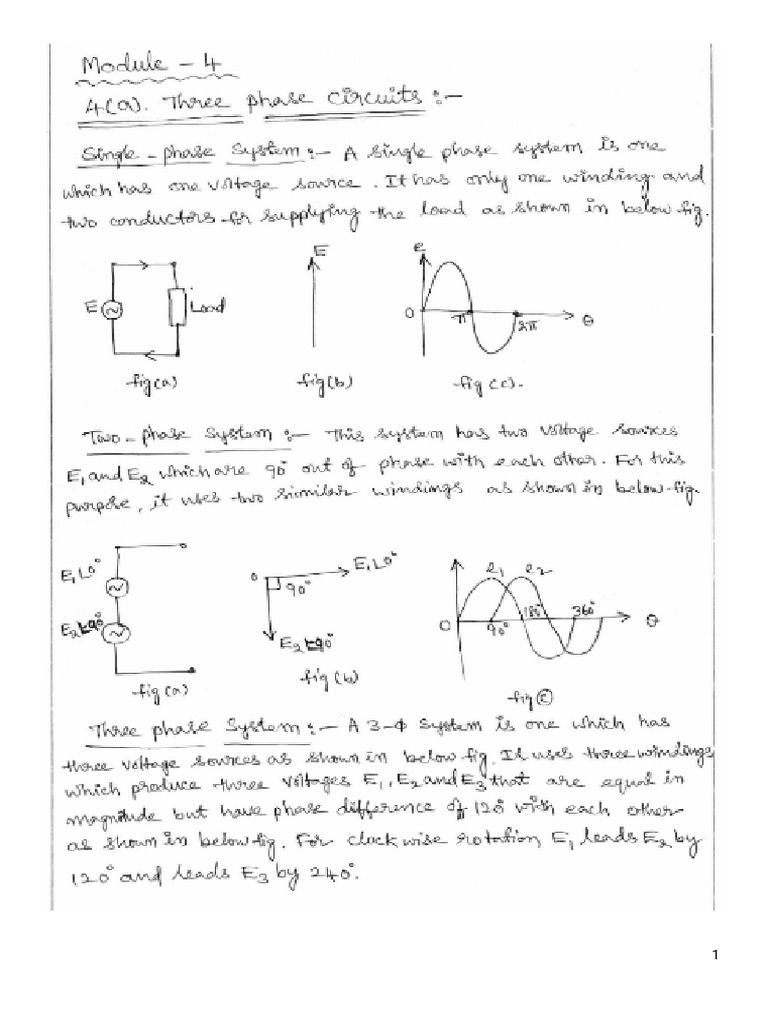 Module - 4
4(a). Three phase circuits :-
Single-phase System :- A single phase system is one
which has one voltage source. It has only one winding and
two conductors for supplying the load as shown in below fig.
E
Load
fig(a)
E
fig(b)
e
0
π
2π
θ
fig (c).
Two-phase System :- This system has two voltage sources
E1 and E2 which are 90° out of phase with each other. For this
purpose, it uses two similar windings as shown in below fig.
E1∠0°
E2∠-90°
fig(a)
0
E1∠0°
90°
E2∠-90°
fig(b)
e1
e2
0
90°
180°
360°
θ
fig(c)
Three phase System :- A 3-Φ System is one which has
three voltage sources as shown in below fig. It uses three windings
which produce three voltages E1, E2 and E3 that are equal in
magnitude but have phase difference of 120° with each other
as shown in below fig. For clockwise rotation, E1 leads E2 by
120° and leads E3 by 240°.
1